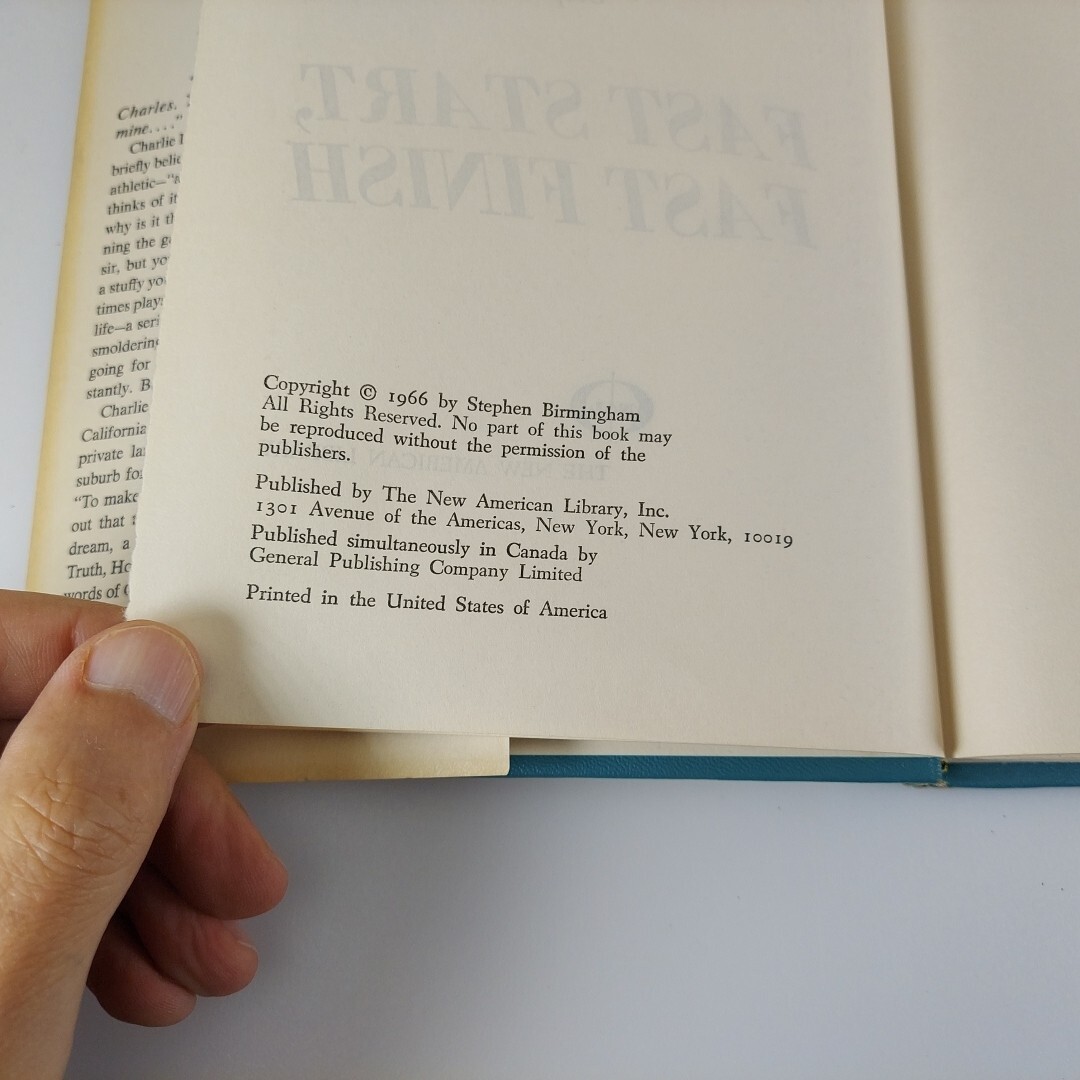 Charles.
mine...."
Charlie
briefly
athletic—"a
thinks of it
why is it
ning the
sir, but
a stuffy
times
life—a
going for
stantly.
Charlie
California
private
suburb
"To make
out that
dream, a
Truth,
words of
FAST START,
FAST FINISH
Copyright © 1966 by Stephen Birmingham
All Rights Reserved. No part of this book may
be reproduced without the permission of the
publishers.
THE NEW AMERICAN
Published by The New American Library, Inc.
1301 Avenue of the Americas, New York, New York, 10019
Published simultaneously in Canada by
General Publishing Company Limited
Printed in the United States of America